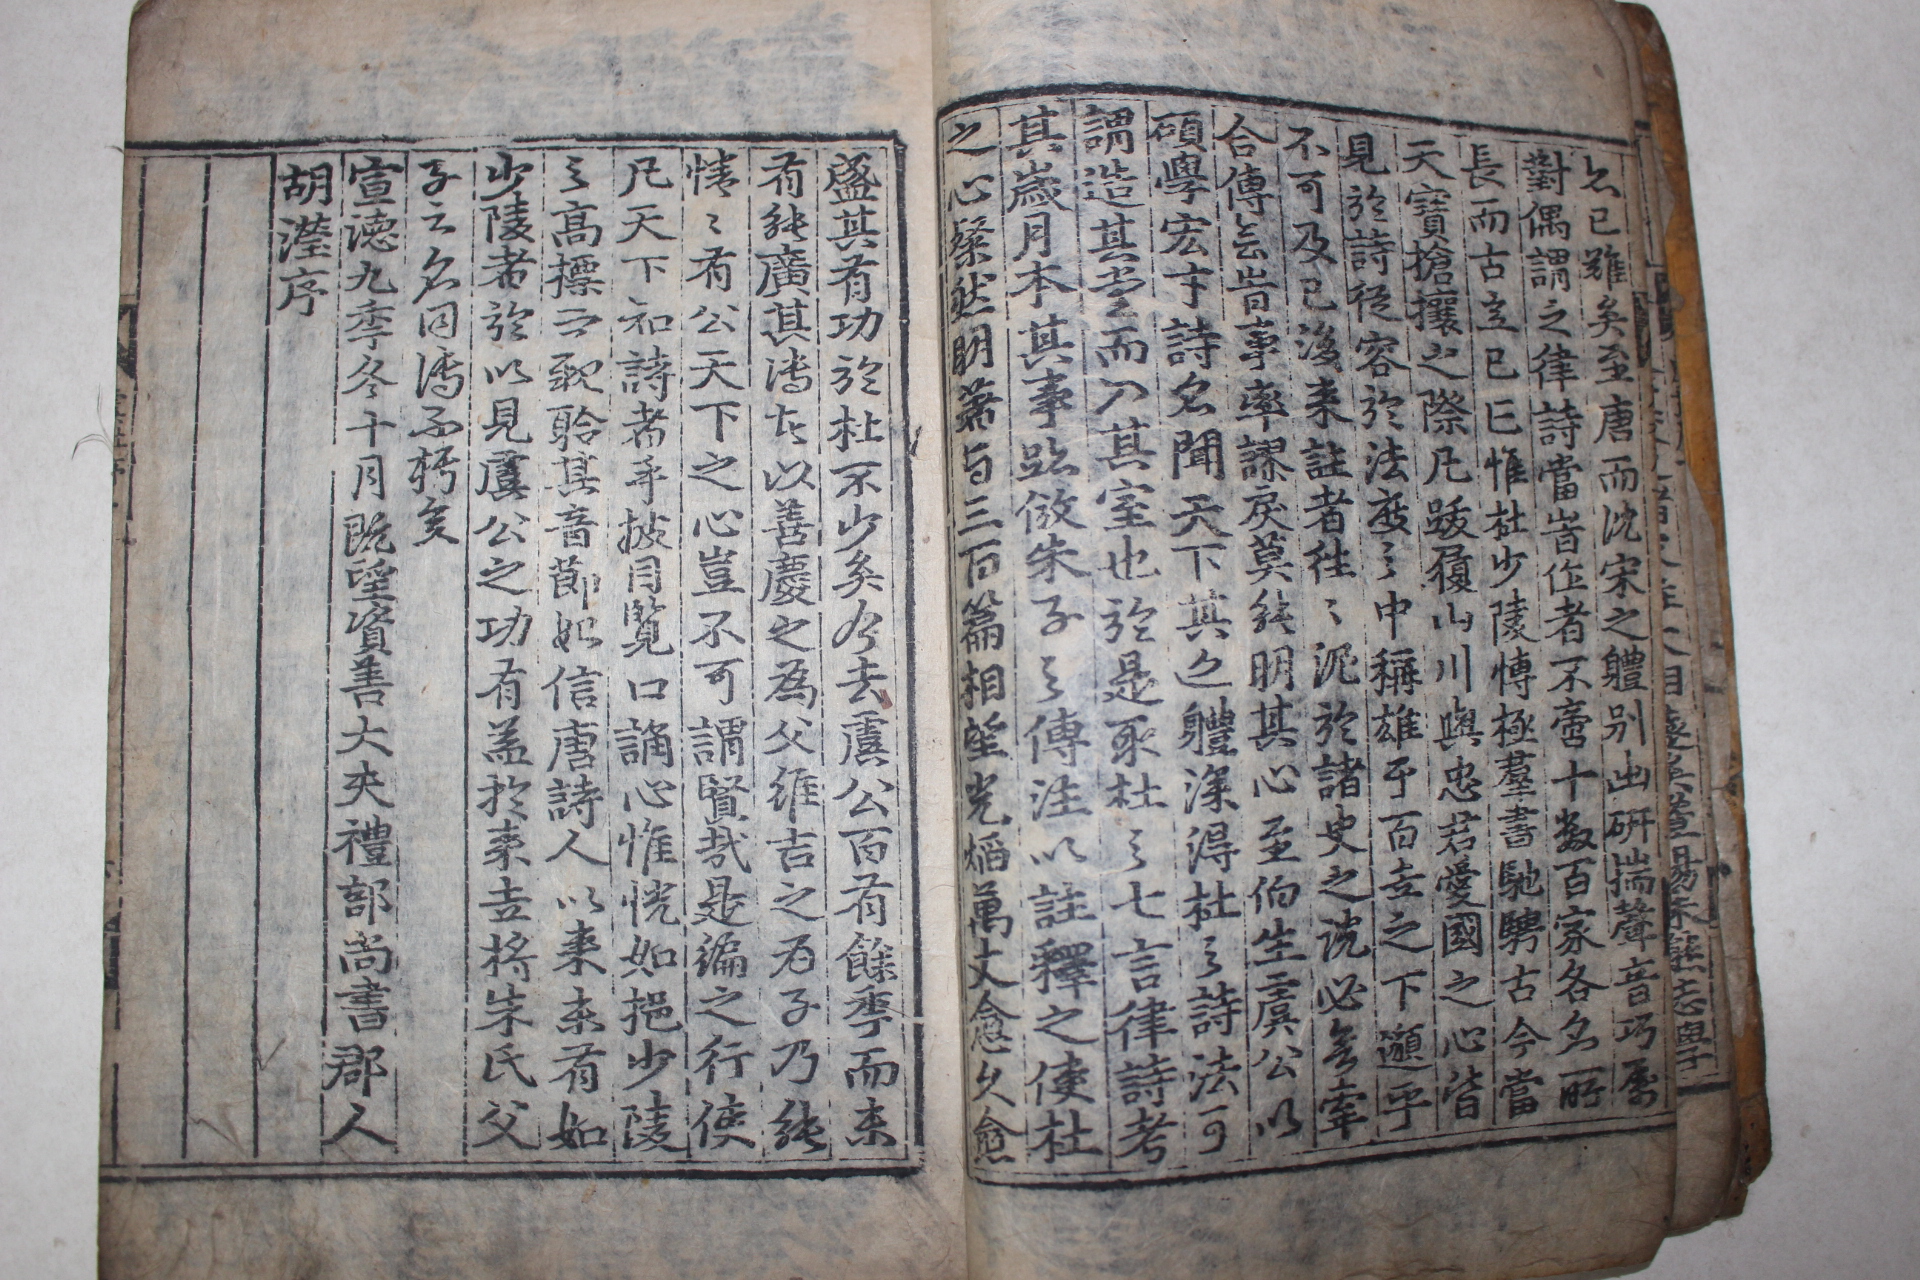 公已難矣至唐而沈宋之軆別出研揣聲音巧為
對偶謂之律詩當皆作者不啻十數百家各名所
長而古意已亡惟杜少陵愽極羣書馳騁古今當
天寶搶攘之際凡跋履山川與忠君愛國之心皆
見於詩從容於法度之中稱雄乎百世之下邈乎
不可及已後來註者往〻泥於諸史之說必欲牽
合傅會皆事率謬戾莫能明其心至伯生虞公以
碩學宏才詩名聞天下其近軆深得杜之詩法可
謂造其堂而入其室也於是取杜之七言律詩考
其歲月本其事跡倣朱子之傳注以註釋之使杜
之心粲然明著與三百篇相望光焰萬丈愈久愈
盛其有功於杜不少矣今去虞公百有餘季而未
有能廣其傳也以善慶之為父維吉之為子乃能
惓〻有公天下之心豈不可謂賢哉是編之行使
凡天下和詩者手披目覽口誦心惟恍如挹少陵
之高標而聆其音節如信唐詩人以來未有如
少陵者於以見虞公之功有益於來世將朱氏父
子之名同傳不朽矣
宣德九季冬十月旣望資善大夫禮部尚書郡人
胡濙序